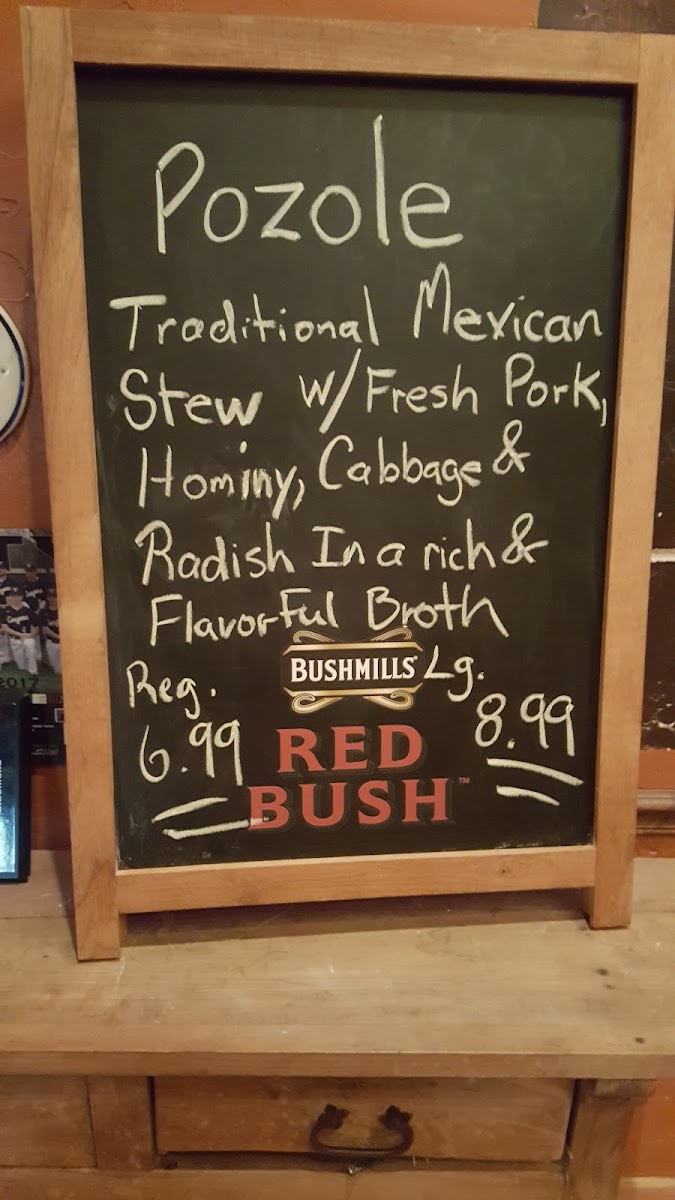 Pozole
Traditional Mexican
Stew w/Fresh Pork,
Hominy, Cabbage &
Radish In a rich &
Flavorful Broth
Reg. BUSHMILLS® Lg.
6.99 RED 8.99
BUSH™
2017